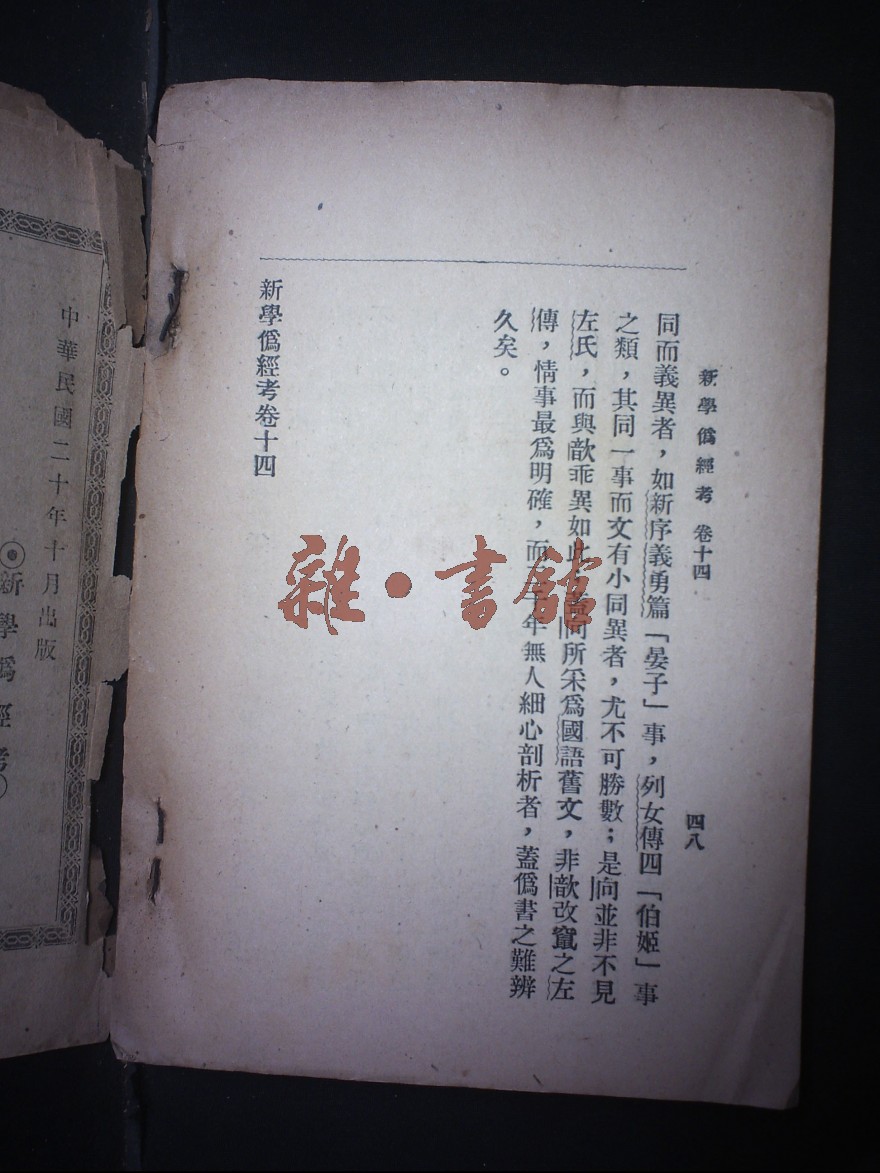 新學僞經考 卷十四
四八
同而義異者，如新序義勇篇「晏子」事，列女傳四「伯姬」事
之類，其同一事而文有小同異者，尤不可勝數；是向並非不見
左氏，而與歆乖異如此向所采爲國語舊文，非歆改竄之左
傳，情事最爲明確，而年無人細心剖析者，蓋僞書之難辨
久矣。
新學僞經考卷十四
中華民國二十年十月出版
新學僞經考
雜·書館